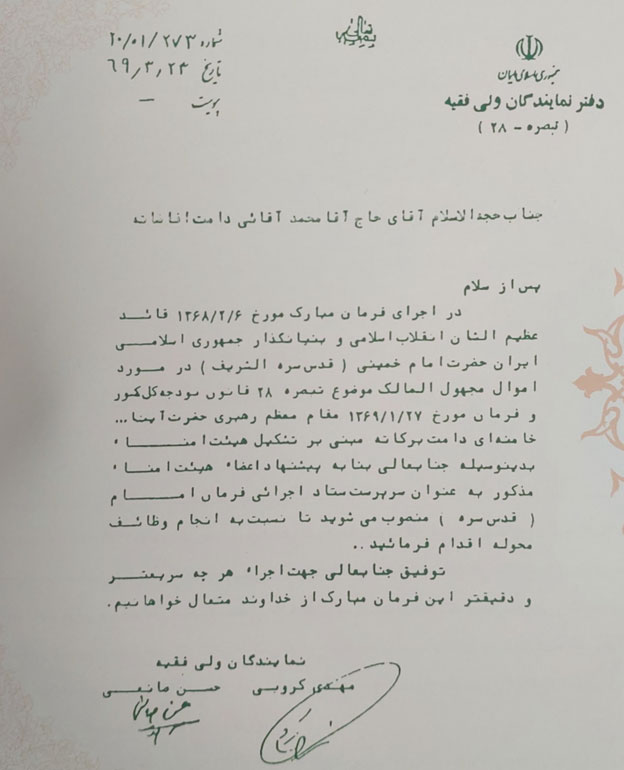 بسمه تعالی
جمهوری اسلامی ایران
دفتر نمایندگان ولی فقیه
( تبصره - ۲۸ )
شماره ۲۰/۰۱/۲۷۳
تاریخ ۶۹٫۳٫۲۳
پیوست —
جناب حجةالاسلام آقای حاج آقا محمد آقائی دامت افاضاته
پس از سلام
در اجرای فرمان مبارک مورخ ۱۳۶۸/۲/۶ قائد
عظیم الشان انقلاب اسلامی و بنیانگذار جمهوری اسلامی
ایران حضرت امام خمینی ( قدس سره الشریف ) در مورد
اموال مجهول المالک موضوع تبصره ۲۸ قانون بودجه کل کشور
و فرمان مورخ ۱۳۶۹/۱/۲۷ مقام معظم رهبری حضرت آیتا...
خامنه‌ای دامت برکاته مبنی بر تشکیل هیئت امناء
بدینوسیله جنابعالی بنا به پیشنهاد اعضاء هیئت امناء
مذکور به عنوان سرپرست ستاد اجرائی فرمان امام
( قدس سره ) منصوب می شوید تا نسبت به انجام وظائف
محوله اقدام فرمائید..
توفیق جنابعالی جهت اجراء هر چه سریعتر
و دقیقتر این فرمان مبارک از خداوند متعال خواهانیم.
نمایندگان ولی فقیه
مهدی کروبی حسن صانعی